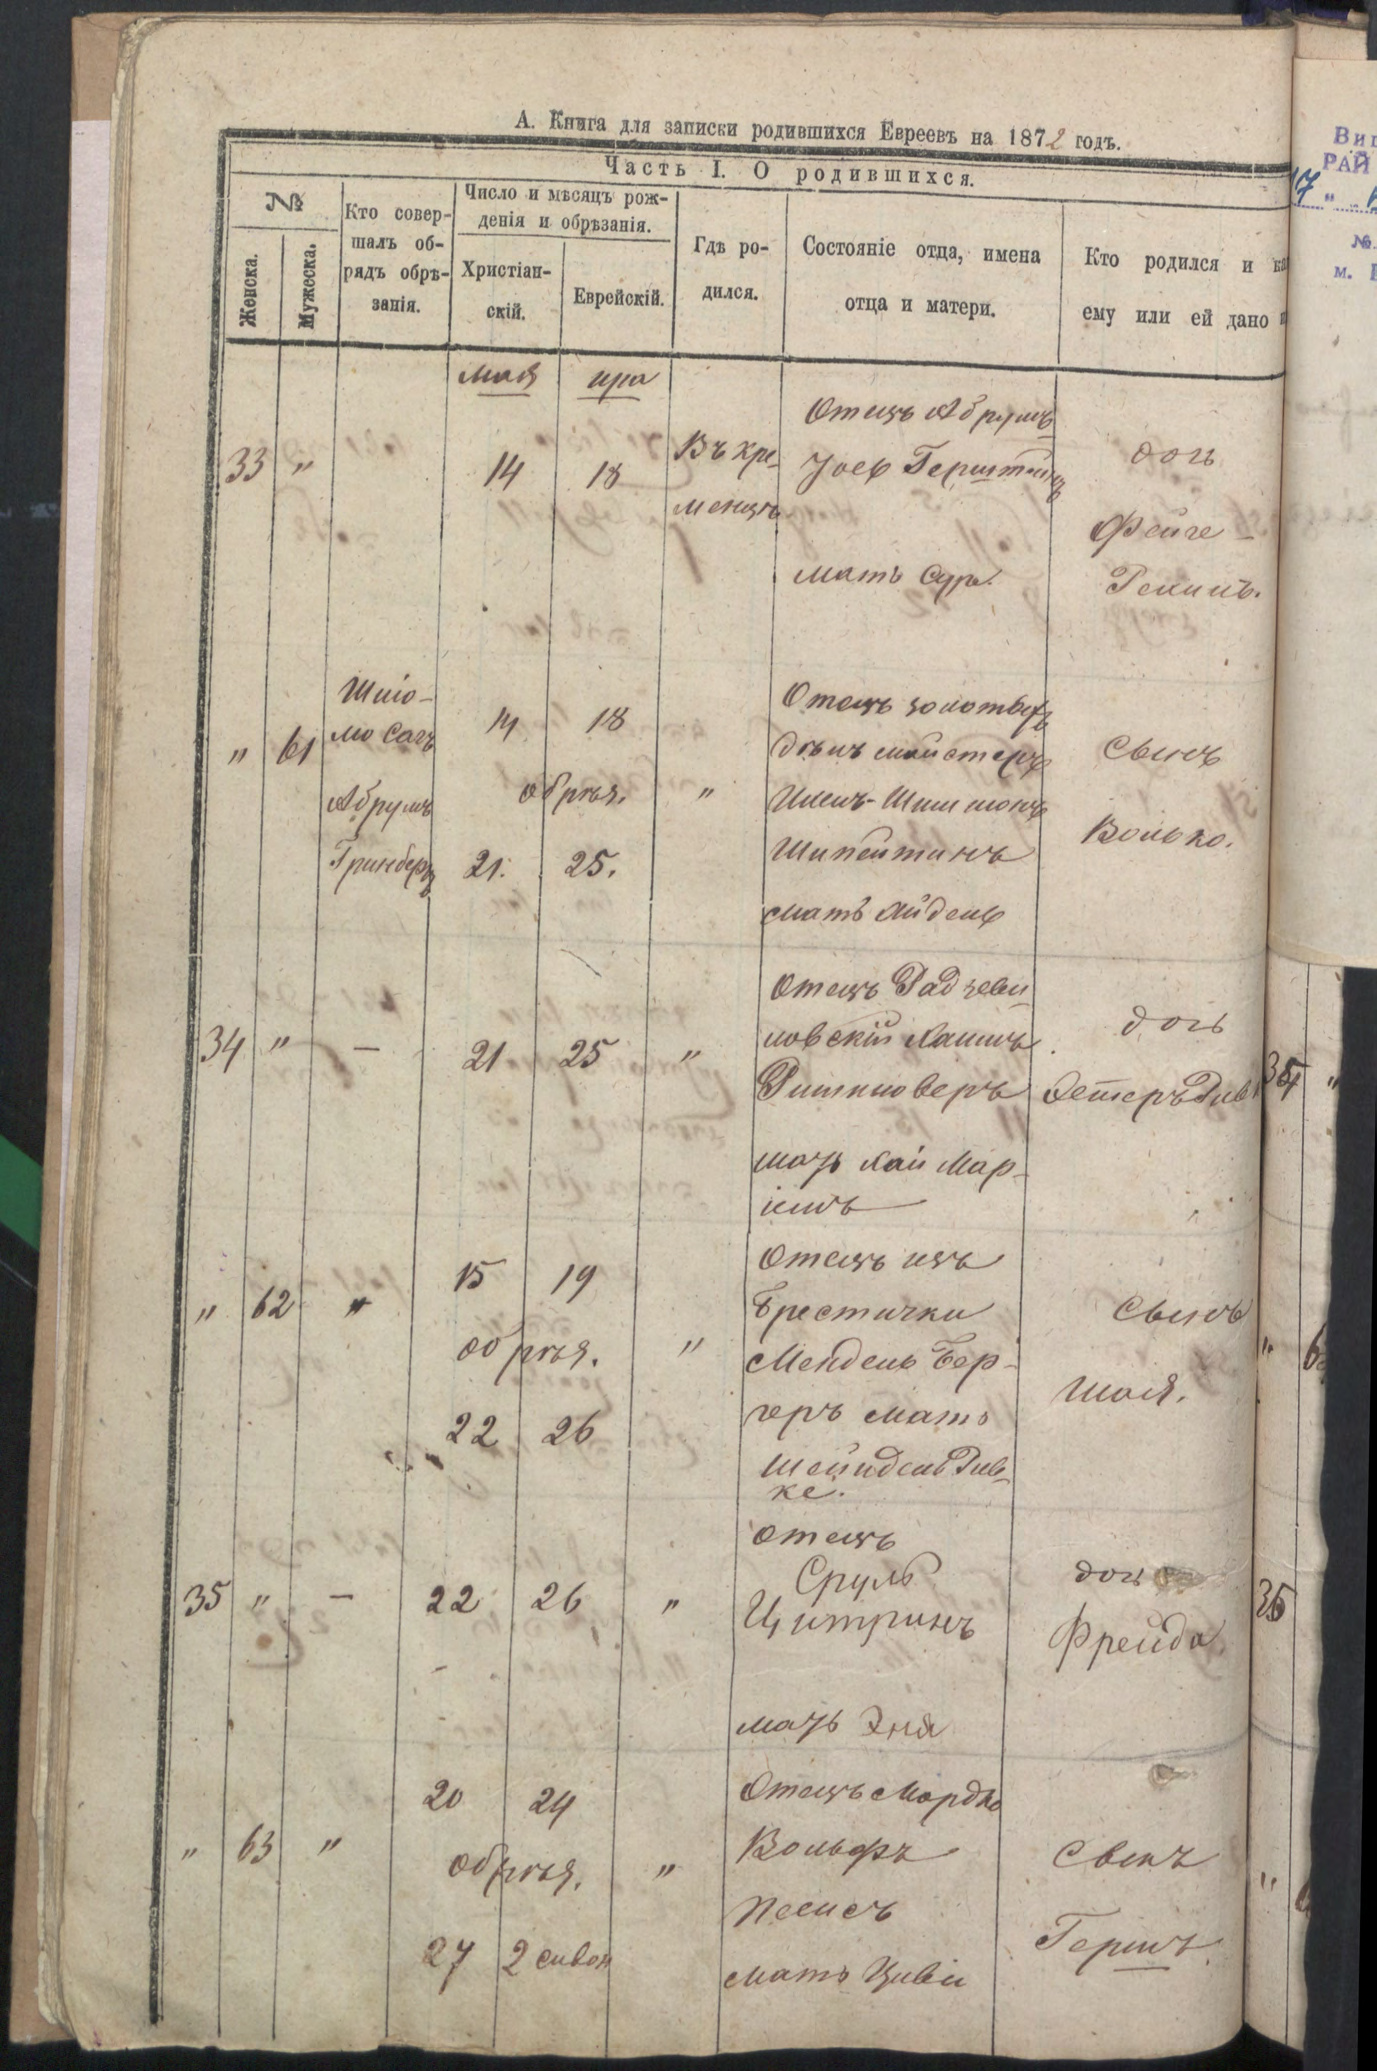 А. Книга для записки родившихся Евреевъ на 1872 годъ.
Часть I. О родившихся.
№
Женска.
Мужеска.
Кто совер-
шалъ об-
рядъ обрѣ-
занія.
Число и мѣсяцъ рож-
денія и обрѣзанія.
Христіан-
скій.
Еврейскій.
Гдѣ ро-
дился.
Состояніе отца, имена
отца и матери.
Кто родился и ка
ему или ей дано и
мая
ира
33 "
14 18
Въ Кре-
менцѣ
Отецъ Абрумъ
Іосф Герштейнъ
мать Сура.
дочь
Фейге -
" 61
Шліо-
мо Сагъ
Абрумъ
Гринбергъ
14 18
обрѣз.
21. 25.
"
Отецъ
майстеръ
Шимшонъ
мать Айдель
сынъ
Волько.
34 " —
21 25
"
Отецъ Радзеви-
ловскій
мать Хаи Мар-
іемъ
дочь
Эстеръ Рив
" 62 "
15 19
обрѣз.
22 26
"
Отецъ изъ
Брестички
Мендель Бер-
геръ мать
Шейндель Рив-
ке.
сынъ
Шая.
35 " —
22 26
"
отецъ
Сруль
Цитринъ
мать Эня
дочь
Фрейда.
" 63 "
20 24
обрѣз.
27 2 сивон
"
Отецъ Мордко
Вольфъ
Песисъ
мать Цивіи
сынъ
Гершъ.
Виш
РАЙ
17 "
№
м.
34 "
"
35
"